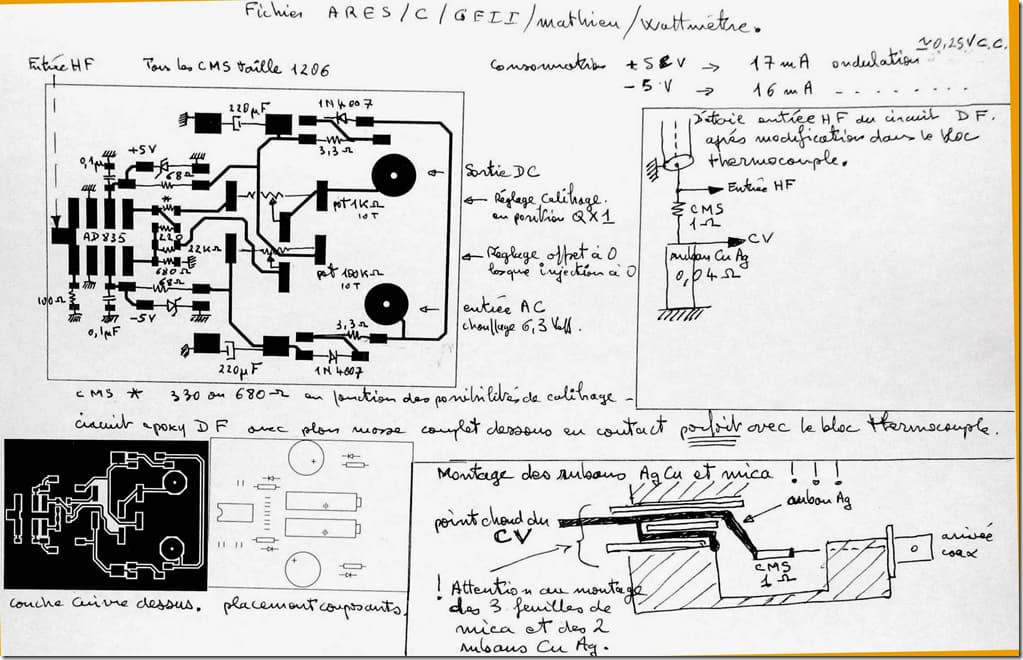 Fichier ARES/C/GEII/mathieu/wattmètre.
≈0,25V C.C.
Consommation +5 V → 17 mA ondulation
-5 V → 16 mA - - - - - - - -
Entrée HF
Tous les CMS taille 1206
220µF
1N4007
3,3Ω
0,1µ
+5V
68Ω
*
AD835
220
22KΩ
680Ω
68Ω
100Ω
0,1µF
-5V
pot 1KΩ
10T
pot 100KΩ
10T
3,3Ω
220µF
1N4007
Sortie DC
Réglage calibrage
en position QX1
Réglage offset à 0
lorsque injection à 0
entrée AC
chauffage 6,3 Volt.
Détail entrée HF du circuit DF.
après modification dans le bloc
thermocouple.
Entrée HF
CMS
1Ω
CV
ruban Cu Ag
0,04Ω
CMS * 330 ou 680Ω en fonction des possibilités de calibrage -
circuit epoxy DF avec plan masse complet dessous en contact parfait avec le bloc thermocouple.
couche cuivre dessus.
placement composants.
Montage des rubans Ag Cu et mica ! ! !
ruban Ag
point chaud du
CV
CMS
1Ω
arrivée
coax
! Attention au montage
des 3 feuilles de
mica et des 2
rubans Cu Ag.